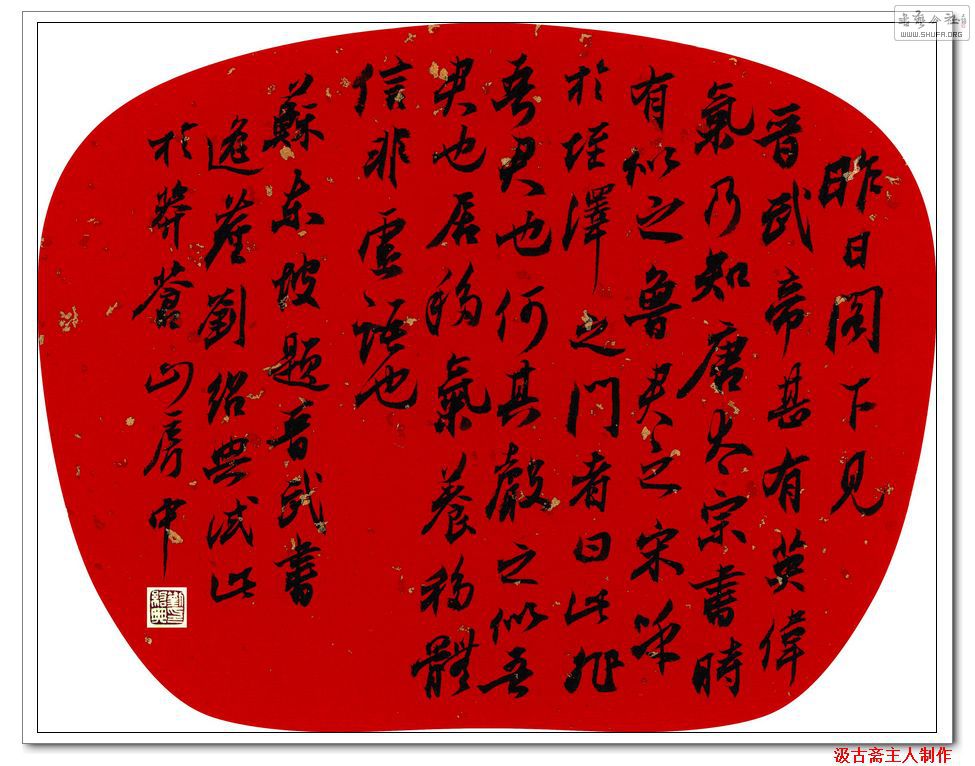 昨日阁下见
晋武帝甚有英偉
氣乃知唐太宗書時
有似之魯君之宋呼
於垤澤之門者曰此非
吾君也何其嚴之似吾
君也居移氣養移體
信非虛語也
蘇東坡題晋武書
逸劉紹典試此
於莽蒼山房中
WWW.SHUFA.ORG
汲古斋主人制作